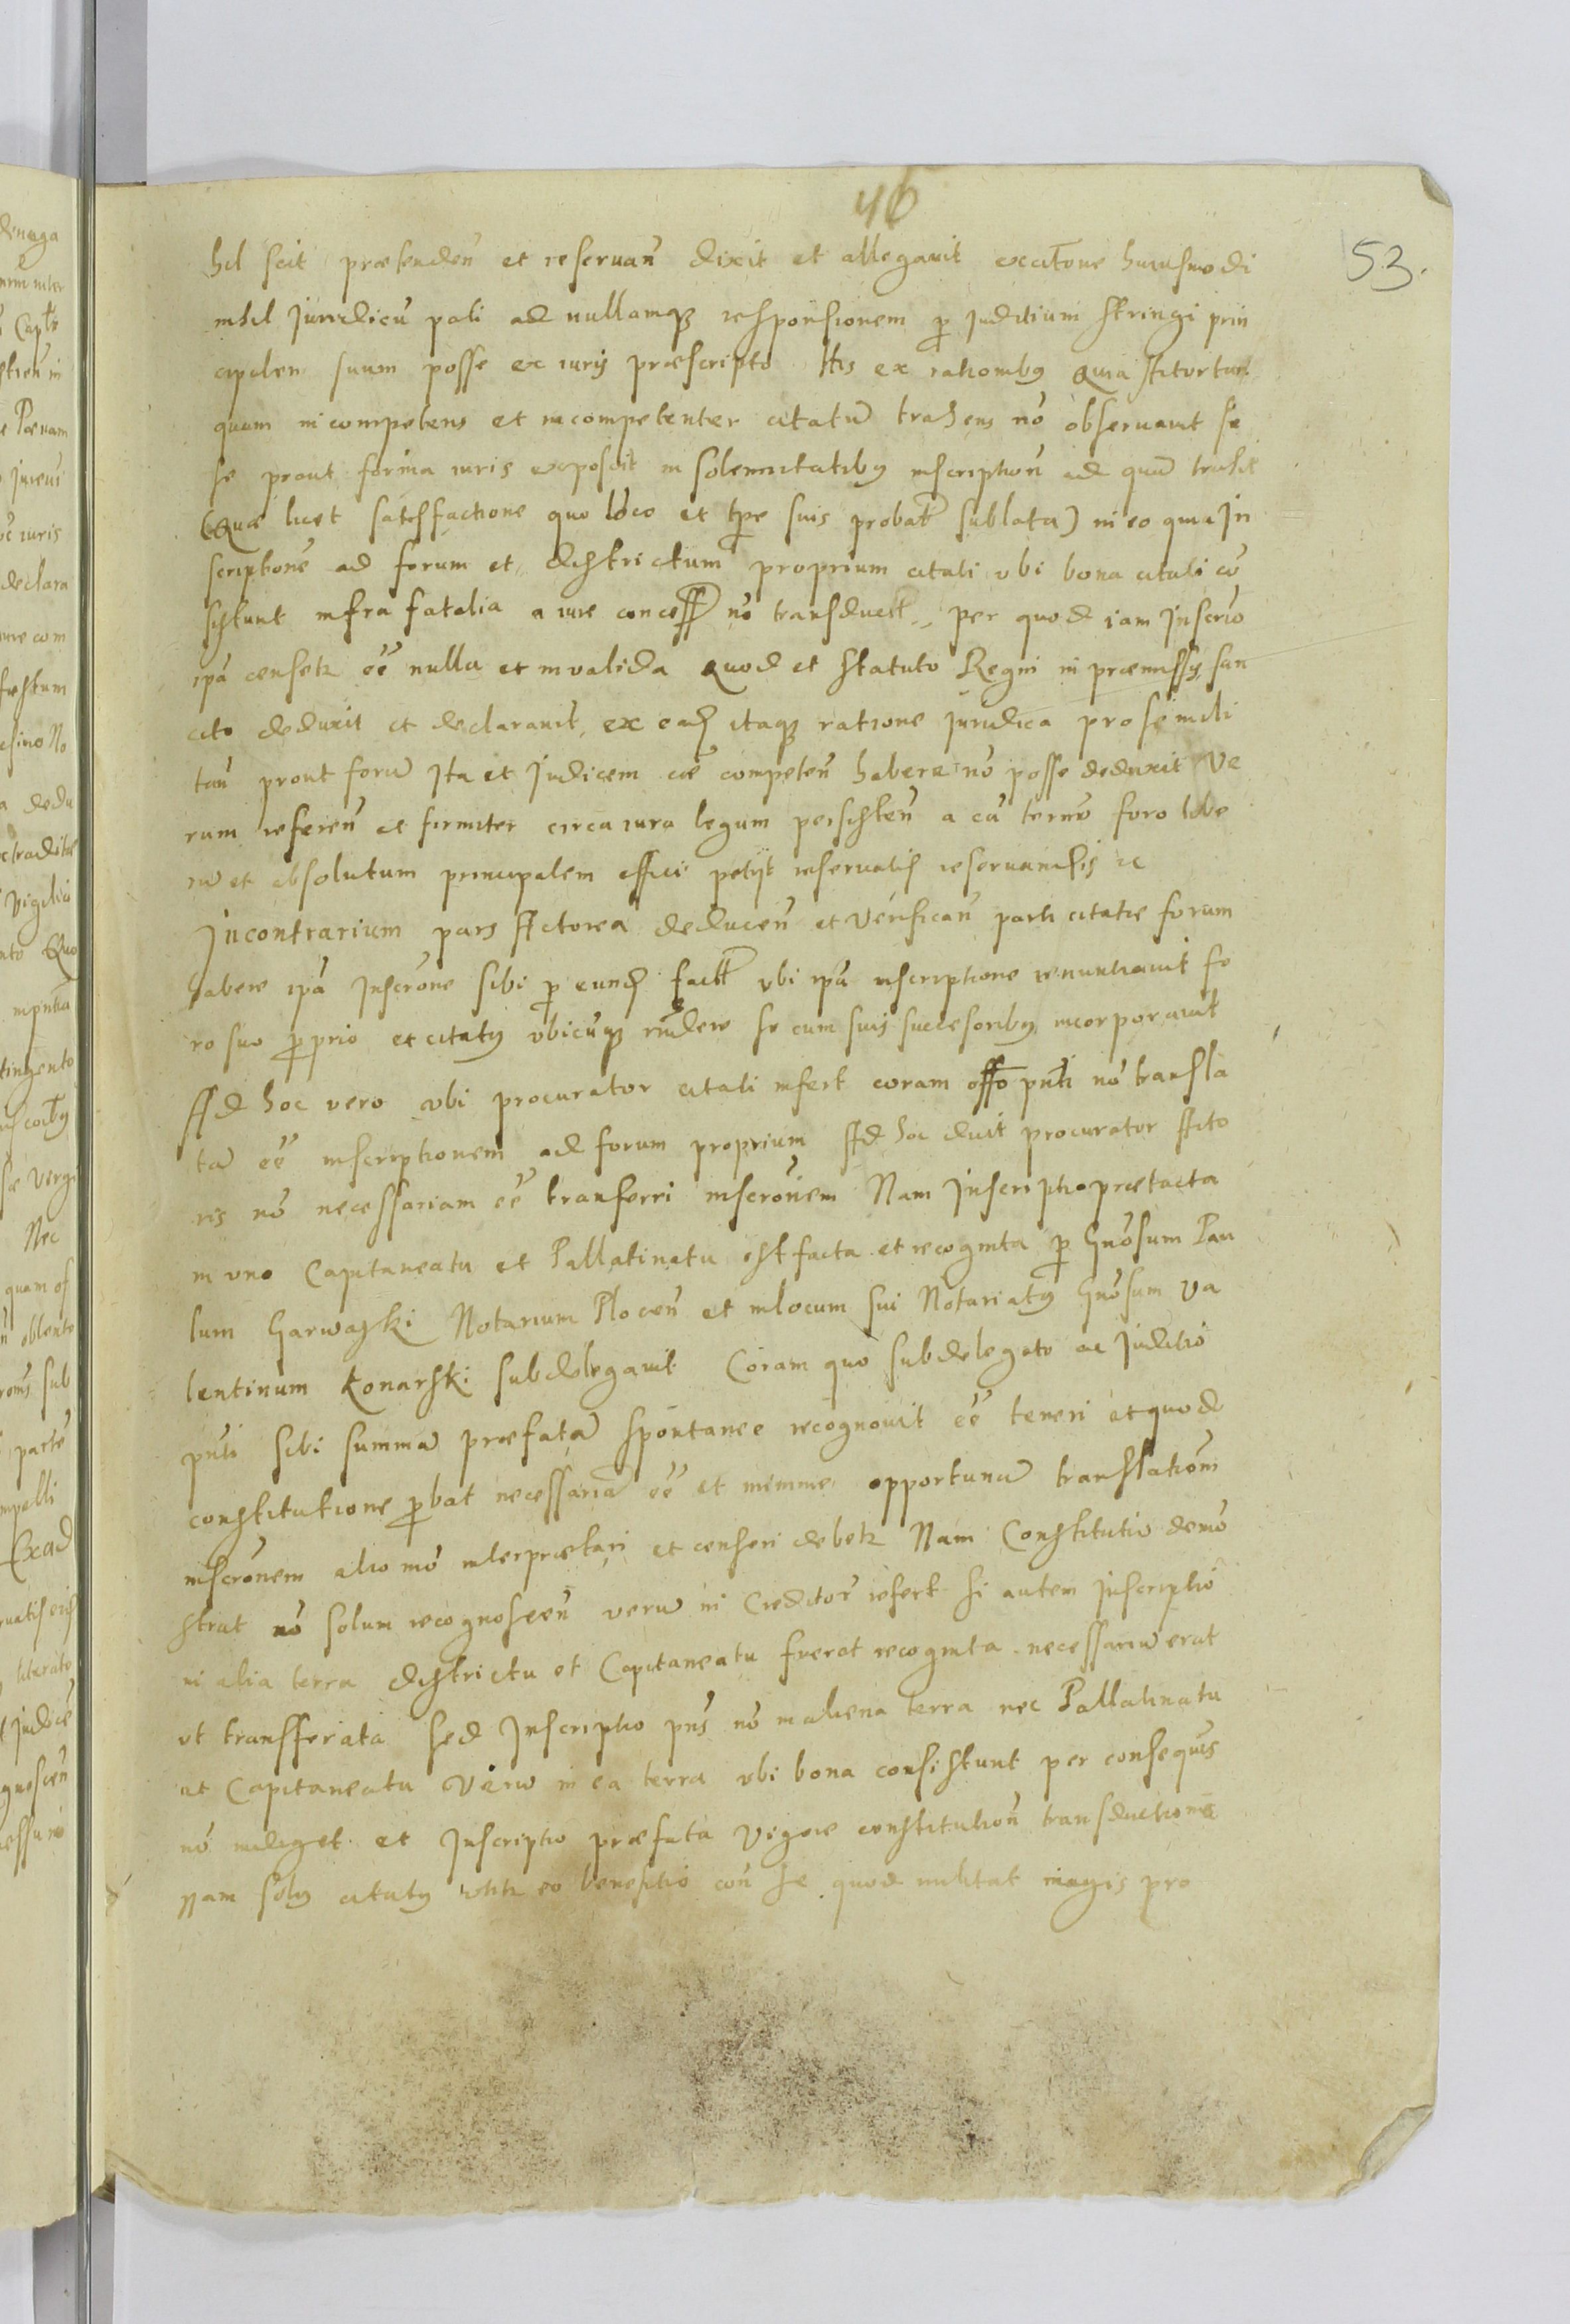 46
53.
hil scit praetenden̄ et reseruan̄ dixit et allegauit ex cit̄one huiusmodi
nihil Iuridicū pati ad nullamq₃ responsionem p̱ Juditium stringi prin
cipalen suum posse ex iuris praescripto His ex rationibꝰ Quia
quam in competens et incompetenter citatū trahens nō obseruauit se
se prout forma iuris exposcit in solemnitatibꝰ inscription̄ ad quā trahit
(Quae licet satisfactione quo loco et tp̄re suis probat̄ sublata) in eo quia In
scriptionē ad forum et districtum proprium citati vbi bona citati cō
sistunt infra fatalia a iure concess̄ nō transduxit, per quod iam Inscrīo
ipā censetr eē nulla et inualida Quod et statuto Regni in praemissis san
cito deduxit et declarauit, ex eadꝫ itaq₃ ratione iuridica pro simili
tan̄ prout forū Ita et Iudicem cāe competen̄ habere nō posse deduxit Ve
rum referen̄ et firmiter circa iura legum persisten̄ a cā terno foro libe
rū et absolutum principalem effici petijt reseruatis reseruandis ꝛc
Incontrarium pars Actorea deducen̄ et verifican̄ parti citatae forum
habere ipā Inscrōne sibi p̱ eundꝫ fact̄ vbi ipā inscriptione renuntiauit fo
ro suo p̱prio et citatꝰ vbicūq₃ rn̄dere se cum suis successoribꝰ incorporauit
Ad hoc vero vbi procurator citati infert coram off̄o pn̄ti nō transla
tā eē inscriptionem ad forum proprium Ad hoc dicit procurator Acto
ris nō necessariam eē transferri inscrōnem Nam Inscriptio praetacta
in vno Capitaneatu et Pallatinatu est facta et recognita p̱ Gn̄osum Pau
lum Garwaski Notarium Plocen̄ et in locum sui Notariatꝰ Gn̄osum Va
lentinum Konarski subdelegauit Coram quo subdelegato ac Juditio
pn̄ti sibi summā praefatā spontanee recognouit eē teneri et quod
constitutione p̱bat necessariā eē et inemine opportunā translationi
inscrōnem alio mō interpraetari et censeri debetr Nam Constitutio demō
strat nō solum recognoscen̄ verū in Creditor̄ refert si autem Inscriptiō
in alia terra districtu et Capitaneatu fuerat recognita necessariū erat
vt transfferata Sed Inscriptio pn̄s nō in aliena terra nec Pallatinatu
ac Capitaneatu Verū in ea terra vbi bona consistunt per consequēs
nō indiget et Inscriptio praefata vigore constitution̄ transductionē
Nam solꝰ citatꝰ vtitr eo benefitio con̄ se quod militat magis pro